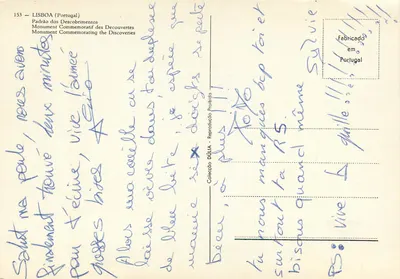 153 - LISBOA (Portugal)
Padrão dos Descobrimentos
Monument Commemoratif des Decouvertes
Monument Commemorating the Discoveries
Fabricado
em
Portugal
Colecção DÚLIA - Reprodução Proibida
Salut ma poule, nous avons
finalement trouvé deux minutes
pour t'écrire, vive l'année
grosses bises,
Alors ma vieille on se
laisse vivre dans
de bleu bite, j'espère que
mamie se porte
bien, à plus !!!
TOTO
tu nous manques bcp toi et
surtout ta R5.
bisous quand même
Sylvie.
PS: vive la quille !!!!!!!